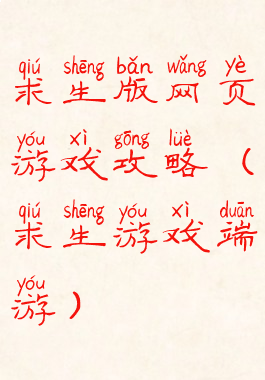 qiú shēng bǎn wǎng yè
求生版网页
yóu xì gōng lüè
游戏攻略（
qiú shēng yóu xì duān
求生游戏端
yóu
游）